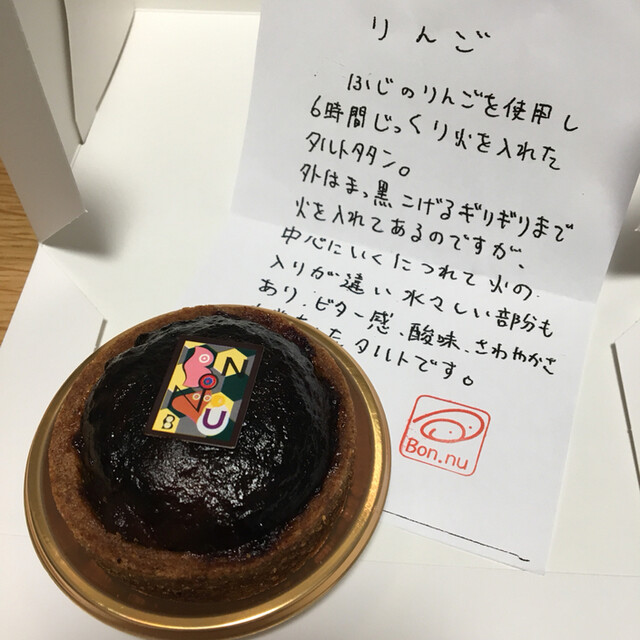 りんご
ふじのりんごを使用し
6時間じっくり火を入れた
タルトタタン。
外はまっ黒こげるギリギリまで
火を入れてあるのですが、
中心にいくにつれて火の
入りが違い水々しい部分も
あり、ビター感、酸味、さわやかさ
タルトです。
Bon.nu
BON
NU
B